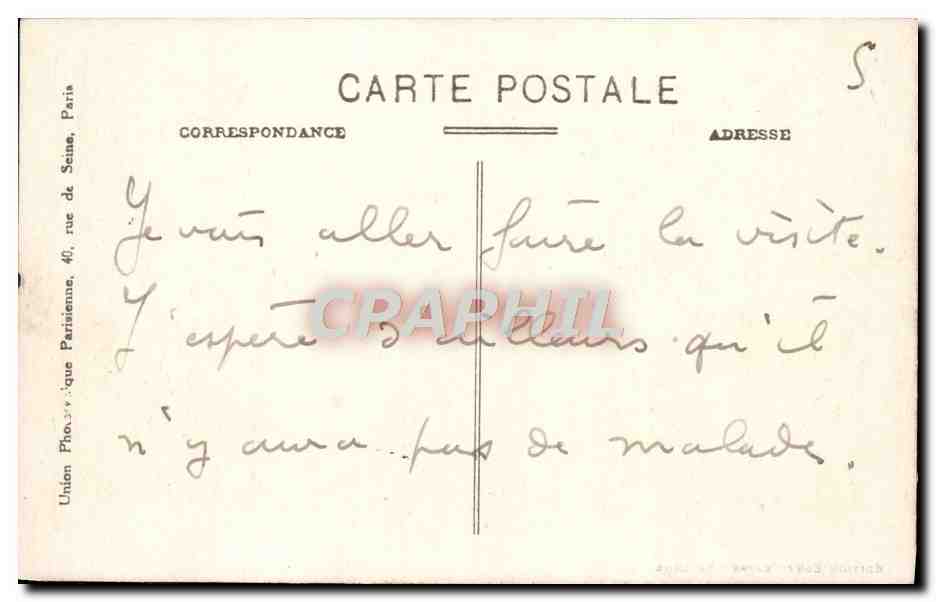 CARTE POSTALE
S
CORRESPONDANCE
ADRESSE
Je vais aller faire la visite.
J'espère d'ailleurs qu'il
n'y aura pas de malades.
CRAPHIL
Union Photographique Parisienne, 40, rue de Seine, Paris